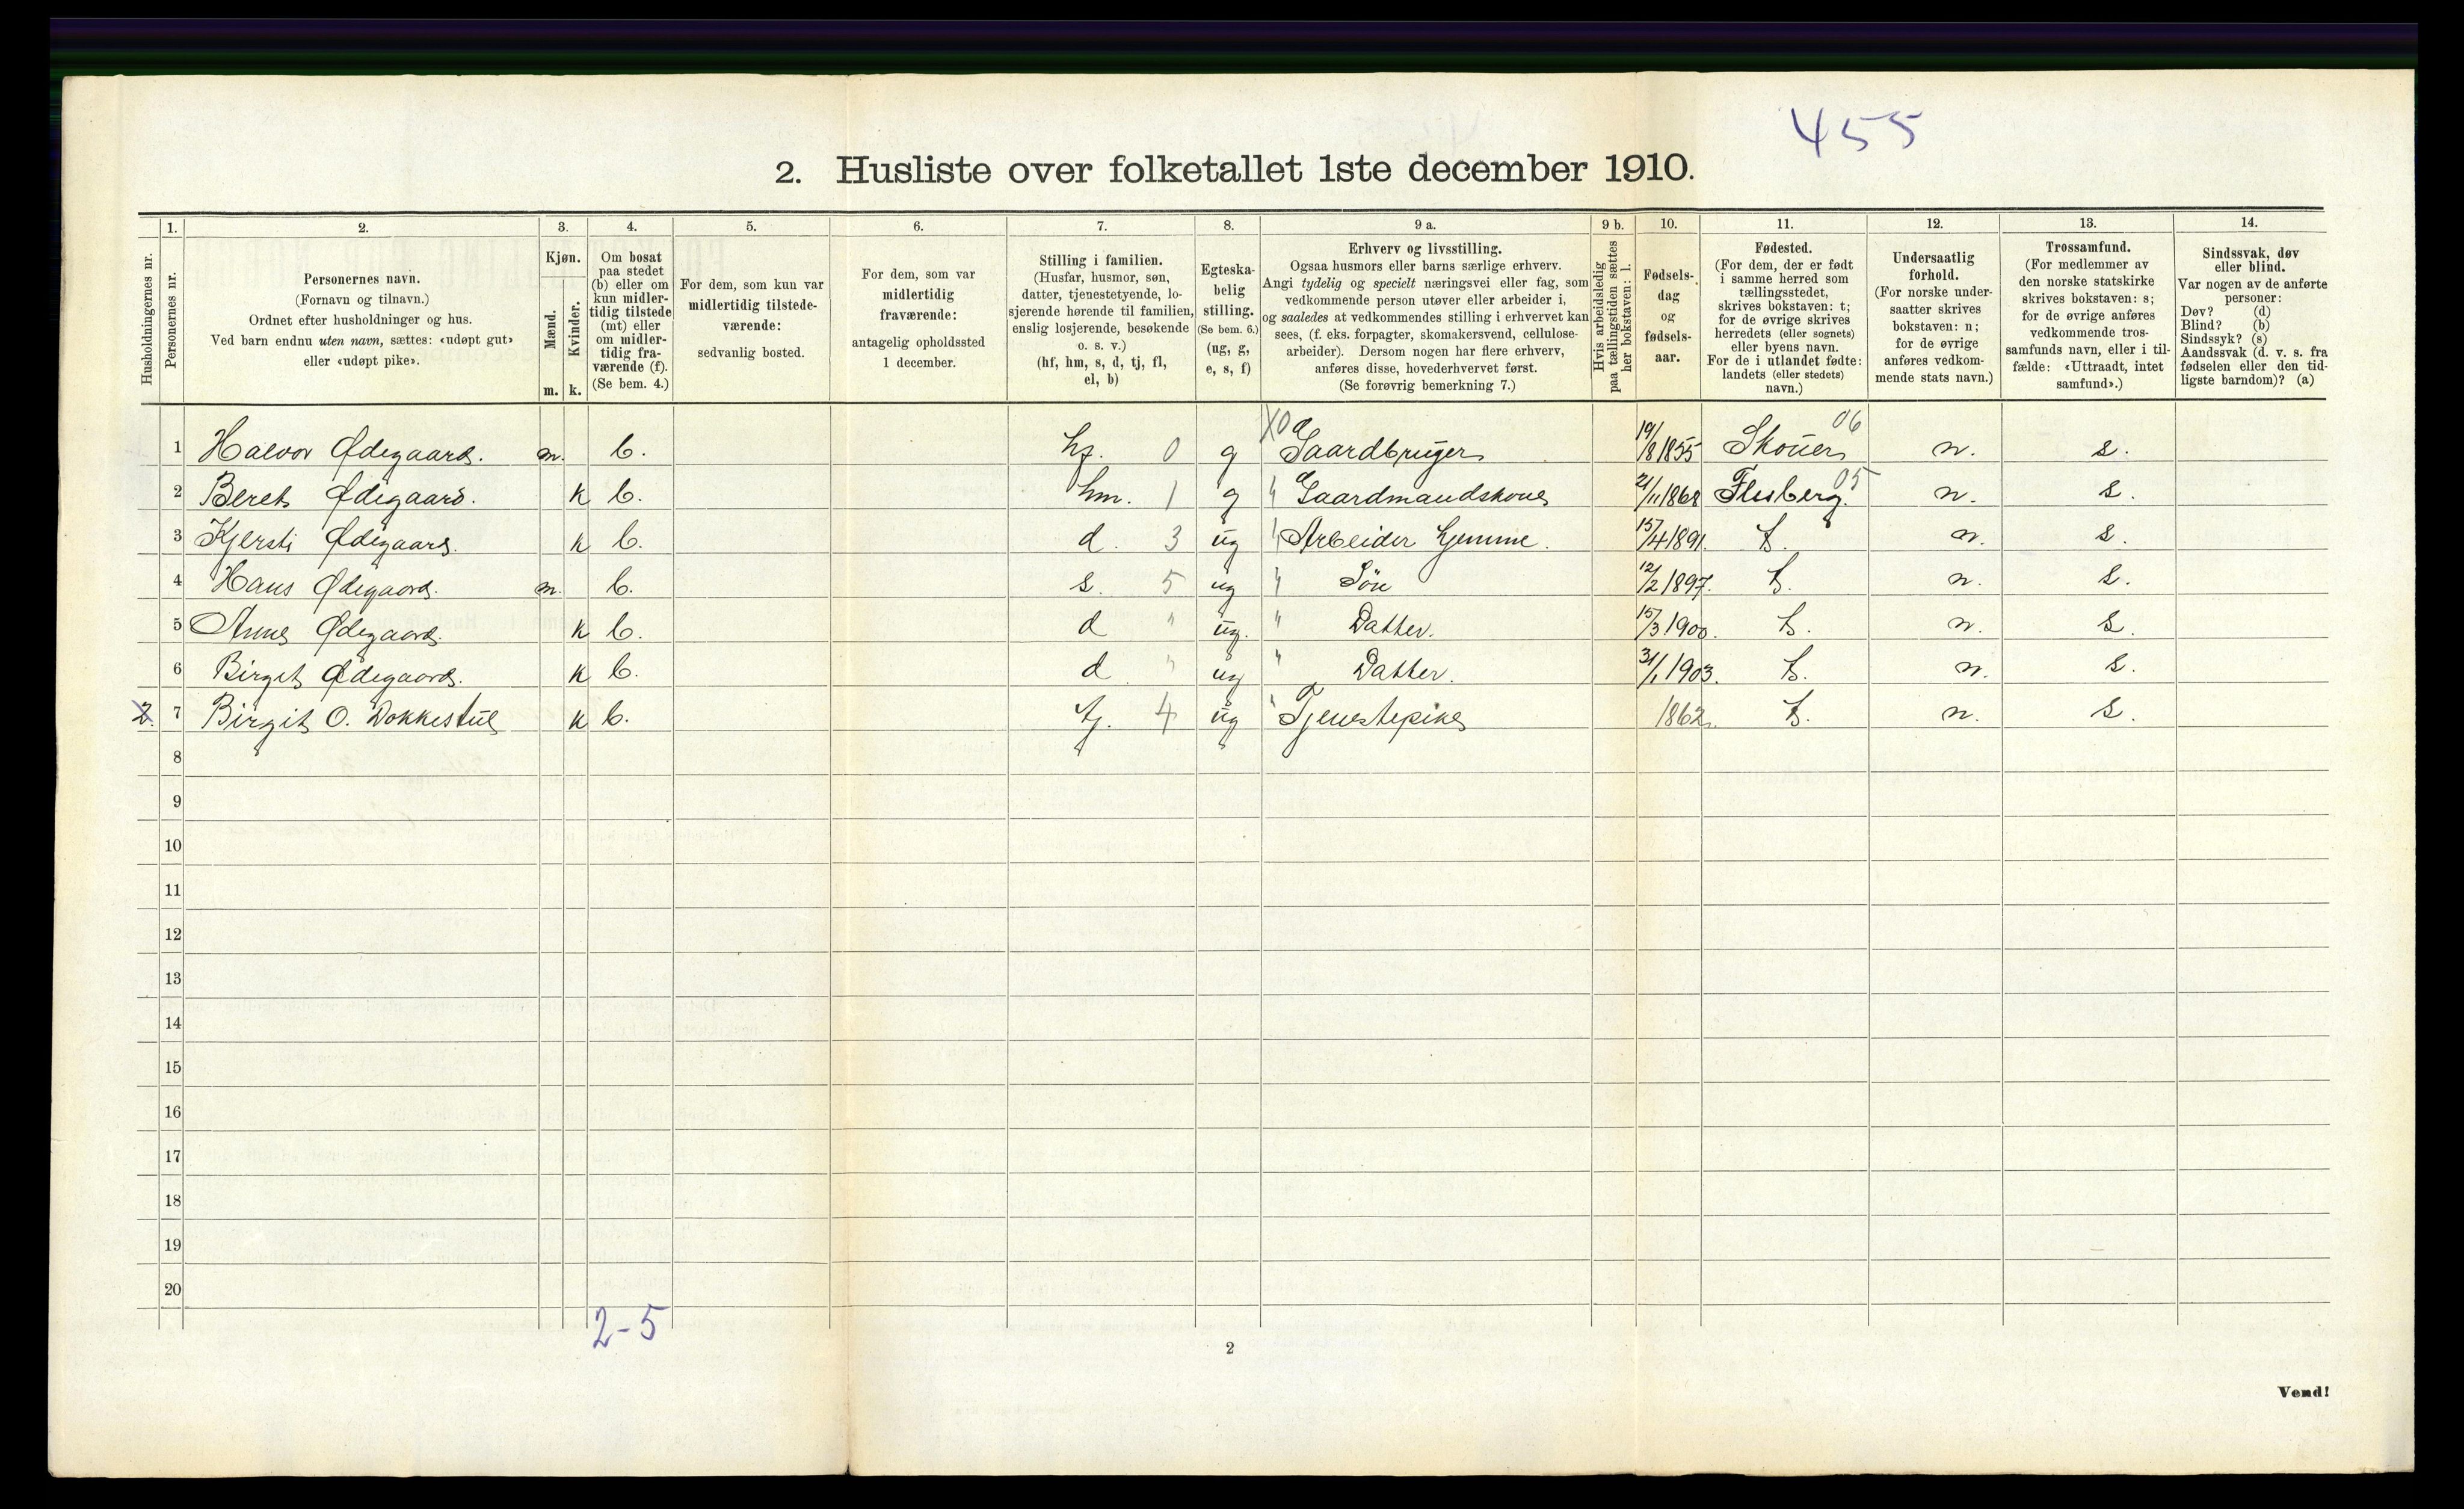 455
2. Husliste over folketallet 1ste december 1910.
Husholdningernes nr.
1. Personernes nr.
2. Personernes navn. (Fornavn og tilnavn.) Ordnet efter husholdninger og hus. Ved barn endnu uten navn, sættes: «udøpt gut» eller «udøpt pike».
3. Kjøn. Mænd. m. Kvinder. k.
4. Om bosat paa stedet (b) eller om kun midlertidig tilstede (mt) eller om midlertidig fraværende (f). (Se bem. 4.)
5. For dem, som kun var midlertidig tilstedeværende: sedvanlig bosted.
6. For dem, som var midlertidig fraværende: antagelig opholdssted 1 december.
7. Stilling i familien. (Husfar, husmor, søn, datter, tjenestetyende, losjerende hørende til familien, enslig losjerende, besøkende o. s. v.) (hf, hm, s, d, tj, fl, el, b)
8. Egteskabelig stilling. (Se bem. 6.) (ug, g, e, s, f)
9 a. Erhverv og livsstilling. Ogsaa husmors eller barns særlige erhverv. Angi tydelig og specielt næringsvei eller fag, som vedkommende person utøver eller arbeider i, og saaledes at vedkommendes stilling i erhvervet kan sees, (f. eks. forpagter, skomakersvend, cellulosearbeider). Dersom nogen har flere erhverv, anføres disse, hovederhvervet først. (Se forøvrig bemerkning 7.)
9 b. Hvis arbeidsledig paa tællingstiden sættes her bokstaven: l.
10. Fødselsdag og fødselsaar.
11. Fødested. (For dem, der er født i samme herred som tællingsstedet, skrives bokstaven: t; for de øvrige skrives herredets (eller sognets) eller byens navn. For de i utlandet fødte: landets (eller stedets) navn.)
12. Undersaatlig forhold. (For norske undersaatter skrives bokstaven: n; for de øvrige anføres vedkommende stats navn.)
13. Trossamfund. (For medlemmer av den norske statskirke skrives bokstaven: s; for de øvrige anføres vedkommende trossamfunds navn, eller i tilfælde: «Uttraadt, intet samfund».)
14. Sindssvak, døv eller blind. Var nogen av de anførte personer: Døv? (d) Blind? (b) Sindssyk? (s) Aandssvak (d. v. s. fra fødselen eller den tidligste barndom)? (a)
1 Halvor Ødegaard. m. b. hf. 0 g Gaardbruger 19/8 1855 Skouer 06 n. s.
2 Beret Ødegaard. k b. hm. 1 g " Gaardmandskone 21/11 1868 Flesberg. 05 n. s.
3 Kjersti Ødegaard. k b. d. 3 ug " Arbeider hjemme. 15/4 1891. t. n. s.
4 Hans Ødegaard. m. b. s. 5 ug " Søn 12/2 1897. t. n. s.
5 Anne Ødegaard. k b. d " ug. " Datter. 15/3 1900. t. n. s.
6 Birgit Ødegaard. k b. d " ug " Datter. 31/1 1903. t. n. s.
2. 7 Birgit O. Dokkestul k b. tj. 4 ug " Tjenestepike 1862. t. n. s.
8
9
10
11
12
13
14
15
16
17
18
19
20
2-5
2
Vend!